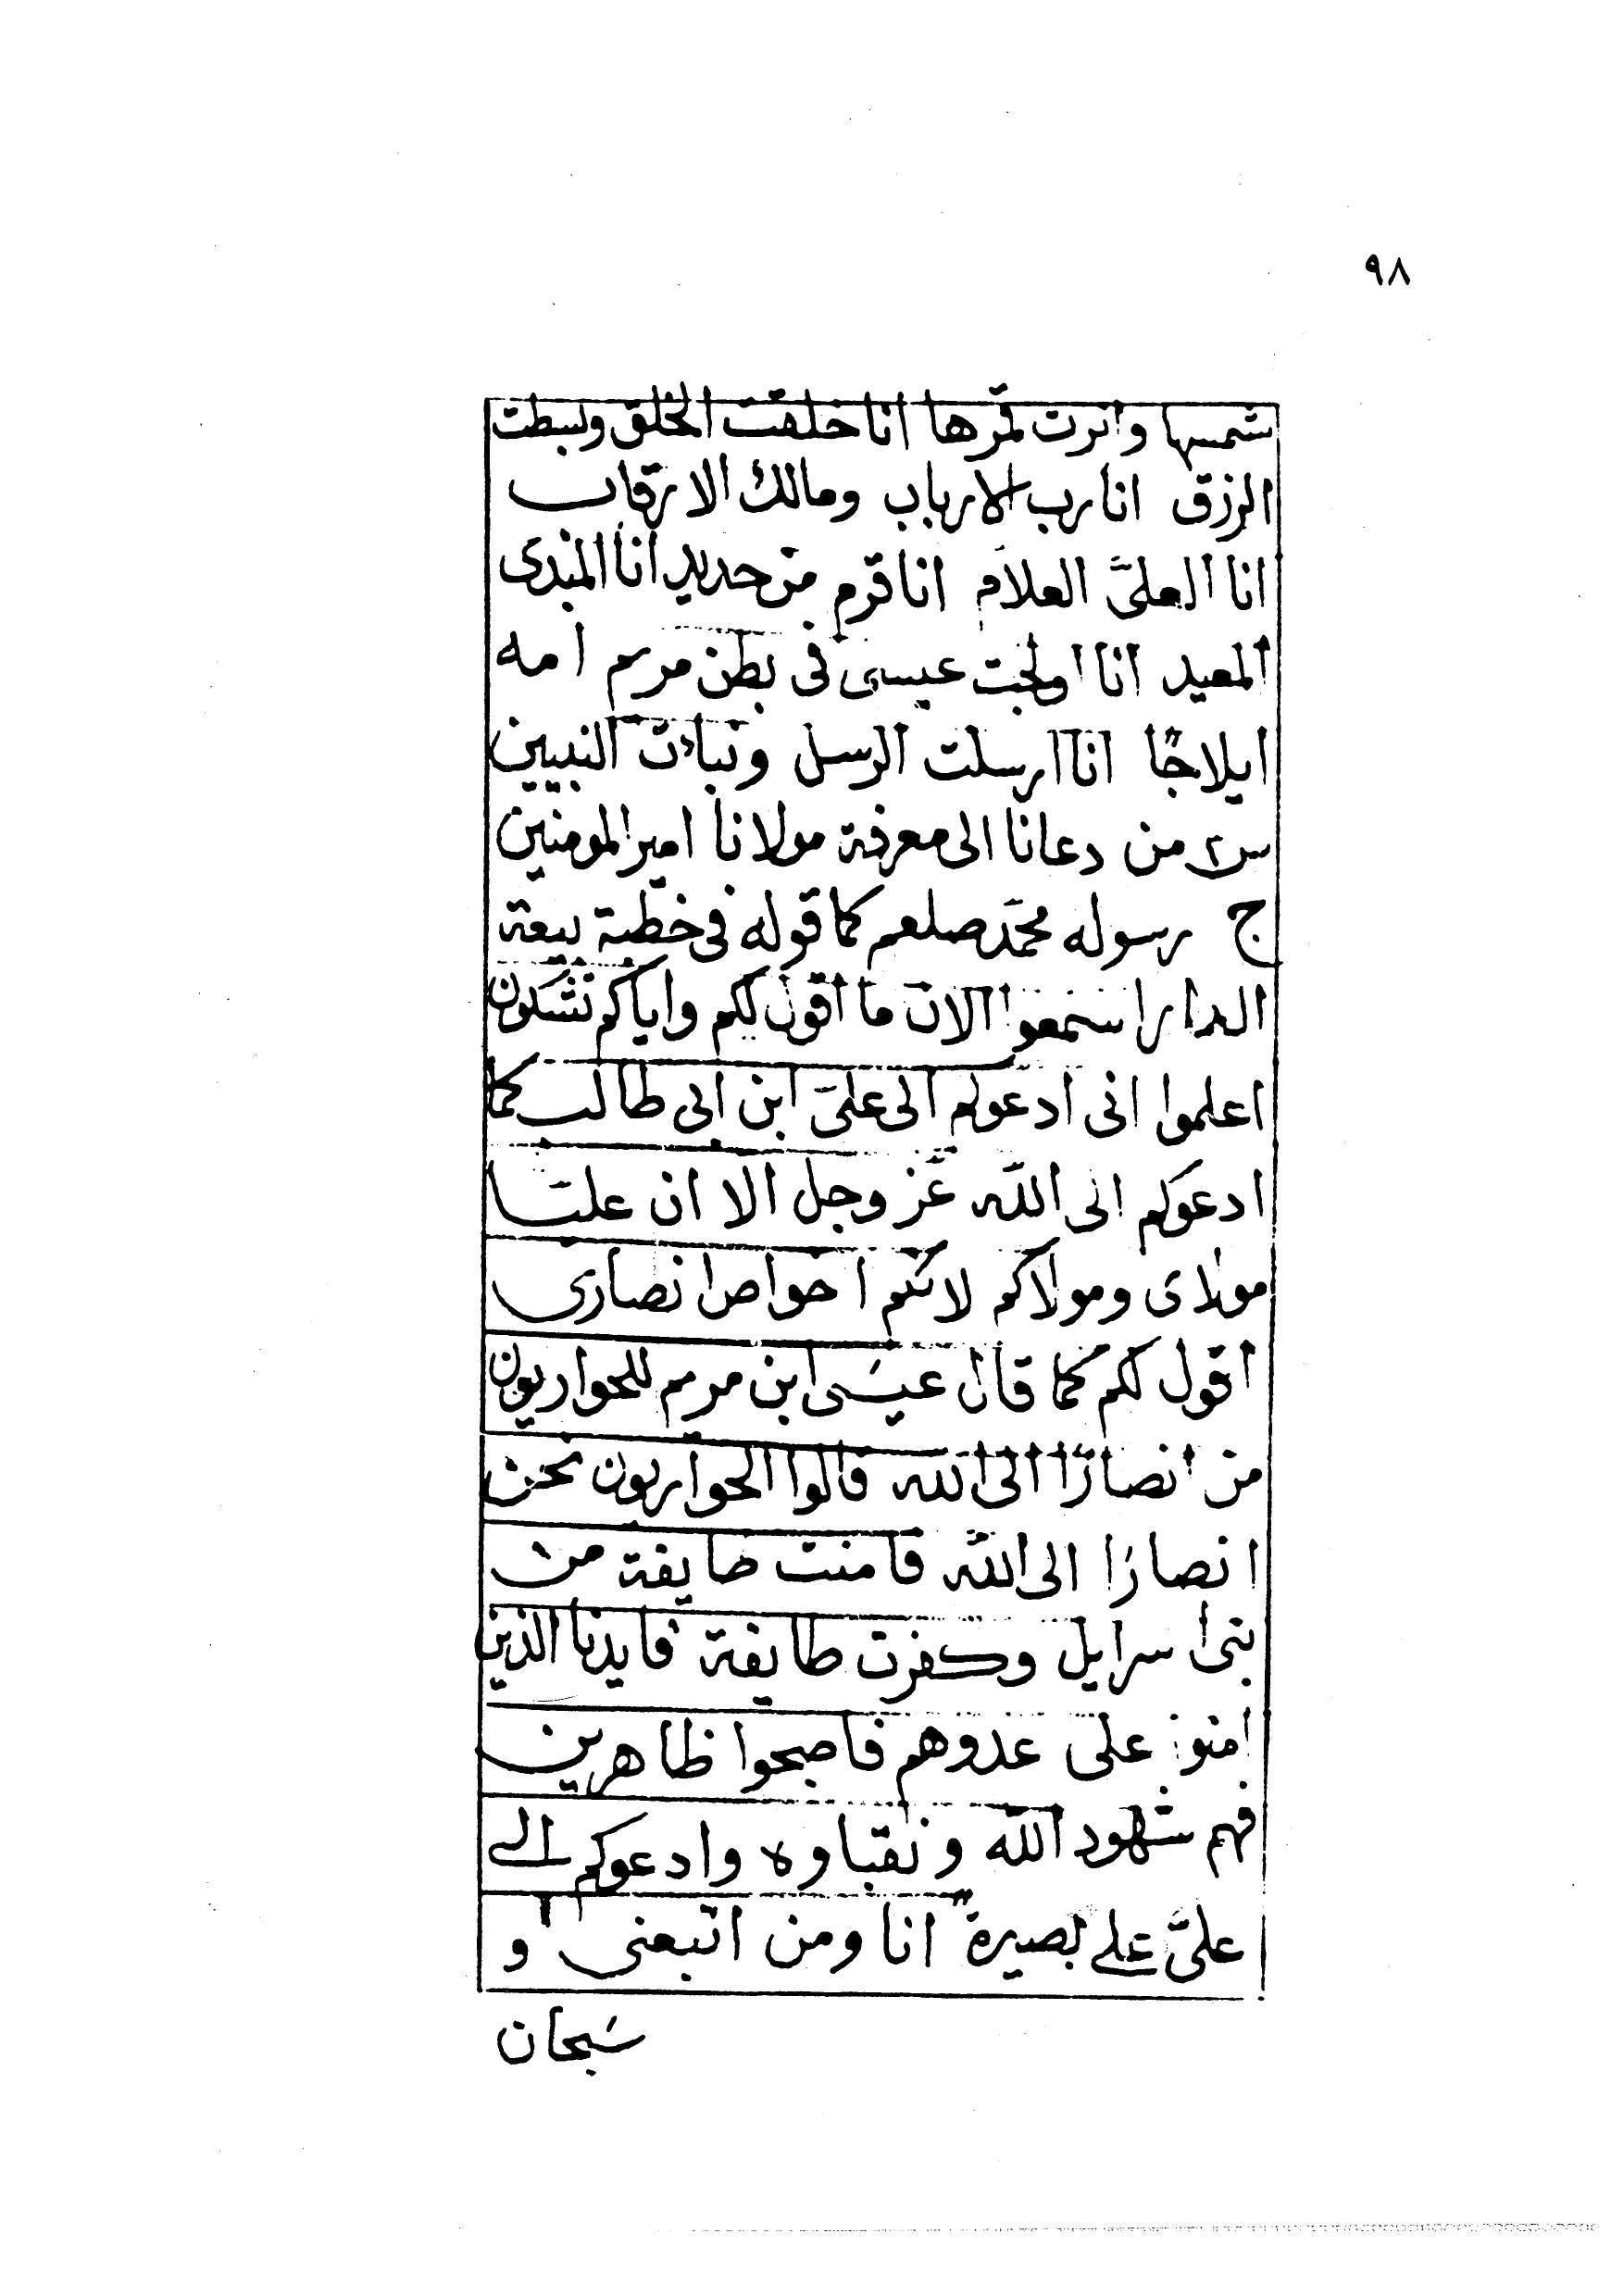 ٩٨
شمسها وانرت قمرها انا خلقت الخلق وبسطت
الرزق انا رب الارباب ومالك الارقاب
انا العلىّ العلام انا قرم من حديد انا المبدى
المعيد انا اولجت عيسى فى بطن مريم امه
ايلاجًا انا ارسلت الرسل ونباءت النبيين
س٢ من دعانا الى معرفة مولانا امير المومنين
ج رسوله محمّد صلعم كما قوله فى خطبة بيعة
الدار اسمعوا الان ما اقول لكم واياكم تشكون
اعلموا انى ادعوكم الى علىّ ابن ابى طالب كما
ادعوكم الى الله عّز وجل الا ان عليّا
مولاى ومولاكم لانكم اخواص انصارى
اقول لكم كما قال عيسَى ابن مريم للحواريون
من انصارًا الى الله قالوا الحواريون نحن
انصارًا الى الله فامنت طايفة من
بنى اسرايل وكفرت طايفة فايدنا الذين
امنوا على عدوهم فاصبحوا ظاهرين
فهم شهود الله ونقباوه وادعوكم الى
علىّ على بصيرة انا ومن اتبعنى و
سَبحان